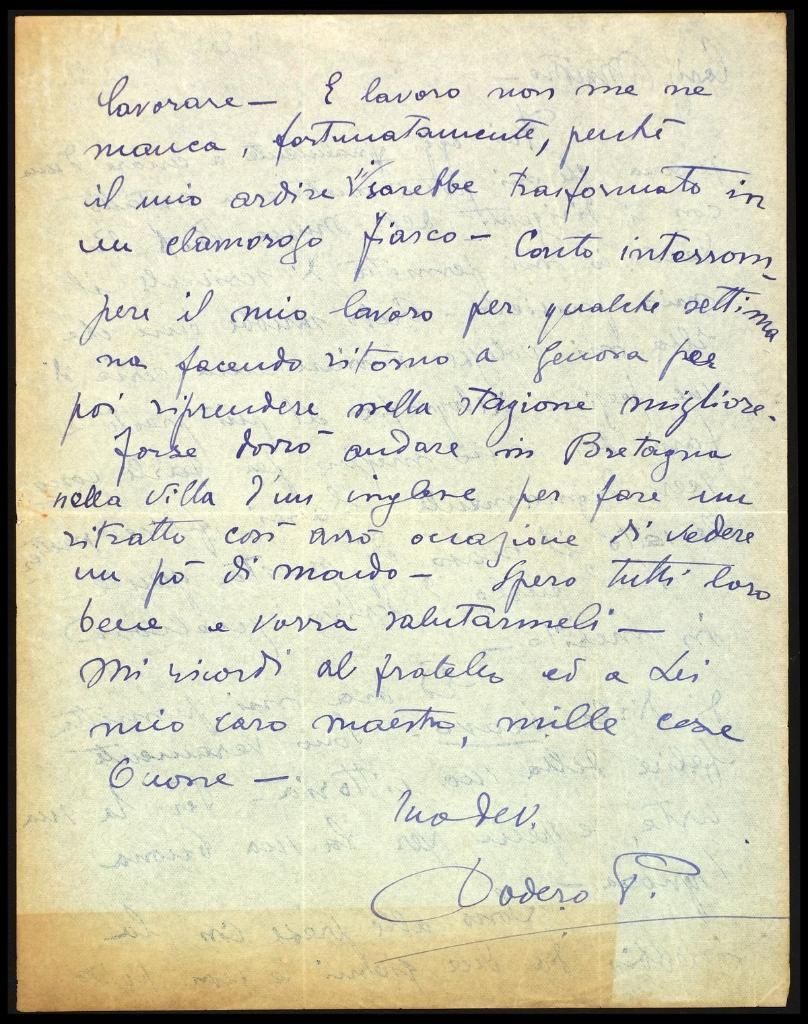 lavorare — E lavoro non me ne
manca, fortunatamente, perché
il mio ardire "sarebbe trasformato in
un clamoroso fiasco — Conto interrom-
pere il mio lavoro per qualche settima
na facendo ritorno a Genova per
poi riprendere nella stagione migliore.
Forse dovrò andare in Bretagna
nella villa d'un inglese per fare un
ritratto così avrò occasione di vedere
un pò di mondo — Spero tutti loro
bene e vorrà salutarmeli —
Mi ricordi al fratello ed a Lei
mio caro maestro, mille cose
buone —
Suo dev.
Dodero P.